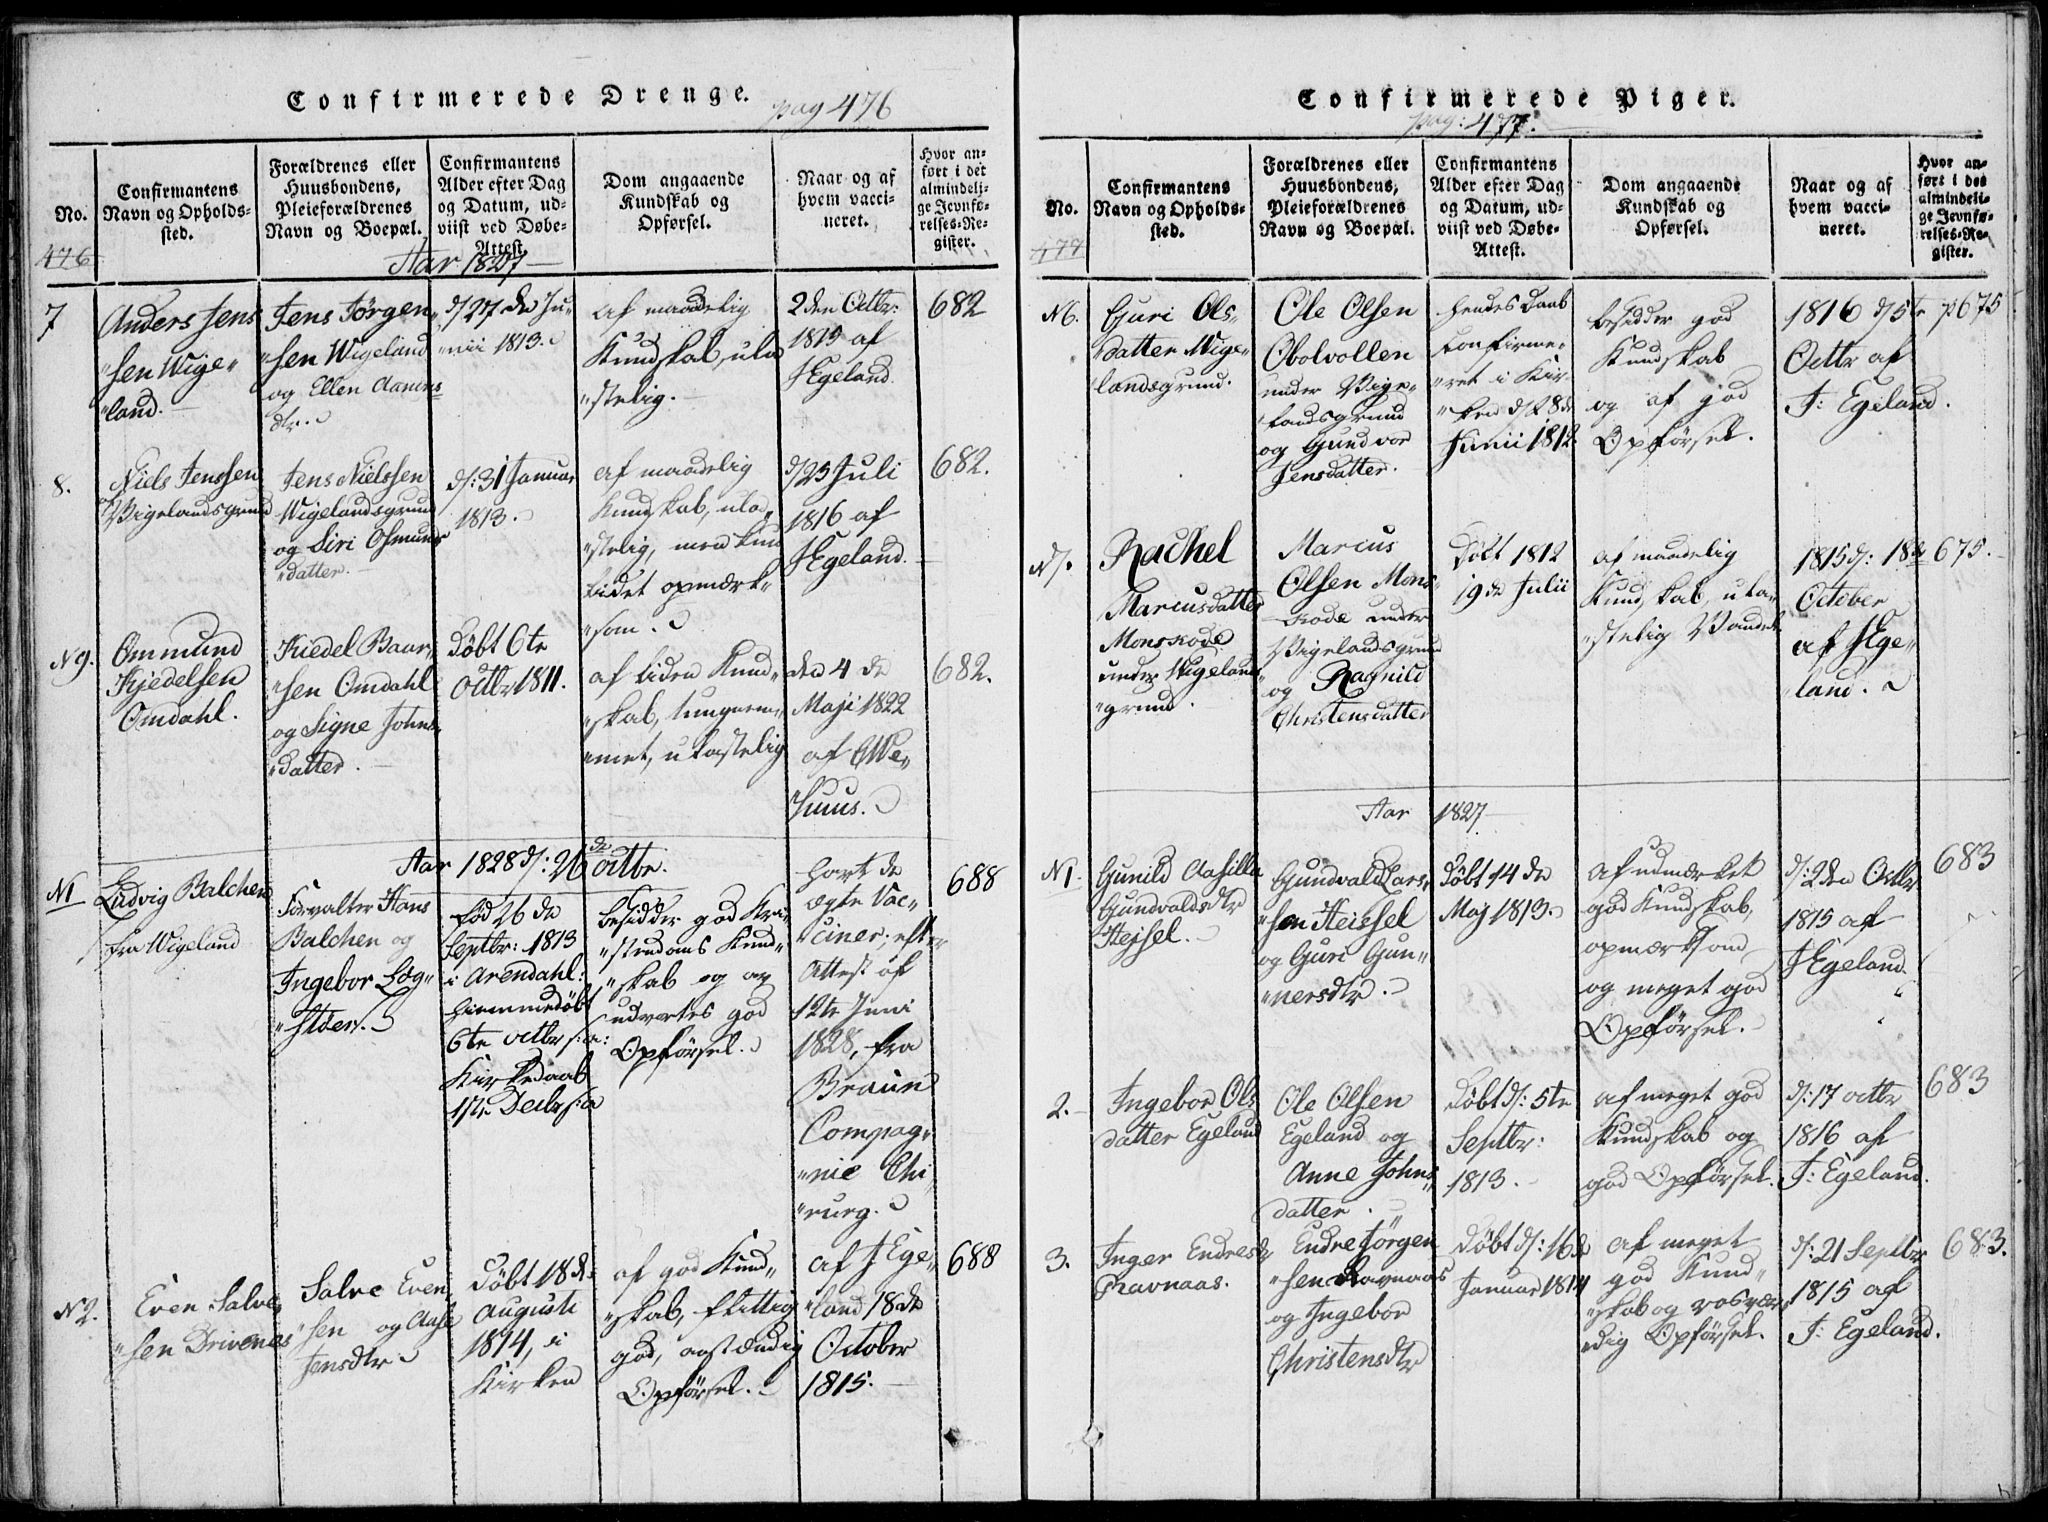 Confirmerede Drenge.
pag 476
No.
Confirmantens
Navn og Opholds-
sted.
Forældrenes eller
Huusbondens,
Pleieforældrenes
Navn og Boepæl.
Confirmantens
Alder efter Dag
og Datum, ud-
viist ved Døbe-
Attest.
Dom angaaende
Kundskab og
Opførsel.
Naar og af
hvem vacci-
neret.
Hvor an-
ført i det
almindeli-
ge Jevnfø-
relses-Re-
gister.
476
Aar 1827
7
Anders Jens
"sen Wige"
"land.
Jens Jørgen"
"sen Wigeland
og Ellen Aanens
dtr.
d/27 de Ju"
"nii 1813.
af maadelig
Kundskab, ula
"stelig.
2den Octbr:
1815 af
J Egeland
682
8.
Niels Jenssen
Vigelandsgrund
Jens Nielssen
Wigelandsgrund
og Siri Osmunds
"datter.
d/: 31 Januar
1813.
af maadelig
Kundskab, ula"
"stelig, men kun
lidet opmærk"
"som.
d/23 Juli
1816 af
J Egeland.
682.
N 9.
Ommund
Kjedelsen
Omdahl.
Kiedel Baar"
"sen Omdahl
og Signe Johns"
"datter.
Døbt 6te
Octbr 1811.
af liden Kund"
"skab, tungnem"
"met, ulastelig
den 4 de
Maji 1822
af
"huus.
682.
Aar 1828 d/: 26 de Octbr.
N 1
Ludvig Balchen
fra Wigeland
Forvalter Hans
Balchen og
Ingebor Løg"
"støer.
født 26 de
Septbr: 1813
i Arendahl:
hiemmedøbt
6te octbr s: a:
Kirkedaab
17de Decbr s: a
besidder god Kri"
"stendoms Kund"
"skab og af
udvortes god
Opførsel.
havt de
ægte Vac"
"ciner; efter
Attest af
12te Juni
1828, fra
Braun
Compag"
"nie Chi"
"rurg.
688
N 2.
Even Salve"
"sen Drivenes
Salve Even
sen og Aase
Jensdtr
Døbt 18 de
Augusti
1814, i
Kirken
af god Kund"
"skab, flittig
god, anstændig
Opførsel.
af J Ege"
"land 18 de
October
1815.
688
Confirmerede Piger.
pag: 477.
No.
Confirmantens
Navn og Opholds-
sted.
Forældrenes eller
Huusbondens,
Pleieforældrenes
Navn og Boepæl.
Confirmantens
Alder efter Dag
og Datum, ud-
viist ved Døbe-
Attest.
Dom angaaende
Kundskab og
Opførsel.
Naar og af
hvem vacci-
neret.
Hvor an-
ført i det
almindeli-
ge Jevnfø-
relses-Re-
gister.
477
N 6.
Guri Ols"
"datter Wige"
"landsgrund.
Ole Olsen
Obolvollen
under Vige"
"landsgrund
og Gundvor
Jensdatter.
hendes Daab
confirme"
"ret i Kir
"ken d/28 de
Junii 1812.
besidder god
Kundskab
og af god
Opførsel.
1816 d/5te
Octbr af
J: Egeland.
p675
N 7.
Rachel
Marcusdatter
Monskode
under Wigelands"
"grund.
Marcus
Olsen Mons"
"kode under
Vigelandsgrund
og Ragnild
Christensdatter
Døbt 1812
19 de Julii
af maadelig
Kundskab, ula"
"stelig Vandel
1815 d/: 18 de
October
af J Ege"
"land.
675.
Aar 1827
N 1.
Gunild Aasille
Gundvaldsdtr
Heisel.
Gundvald Lars"
"sen Heissel
og Guri Gun"
"nersdtr.
Døbt 14 de
Maj 1813.
af udmærket
god Kundskab,
opmærksom
og meget god
Opførsel.
d/: 2den Octbr
1815 af
J Egeland.
683
2.
Ingebor Ols
datter Egeland
Ole Olsen
Egeland og
Anne Johns"
datter.
Døbt d/: 5te
Septbr:
1813.
af meget god
Kundskab og
god Opførsel.
d/: 17 octbr
1816 af
J: Egeland.
683
3.
Inger Endresdr
Ravnaas.
Endre Jørgen
"sen Ravnaas
og Ingebor
Christensdtr
Døbt d/: 16 de
Januar 1814
af meget
god Kund"
"skab og rosvær"
"dig Opførsel.
d/: 21 Septbr
1815 af
J: Egeland.
683.